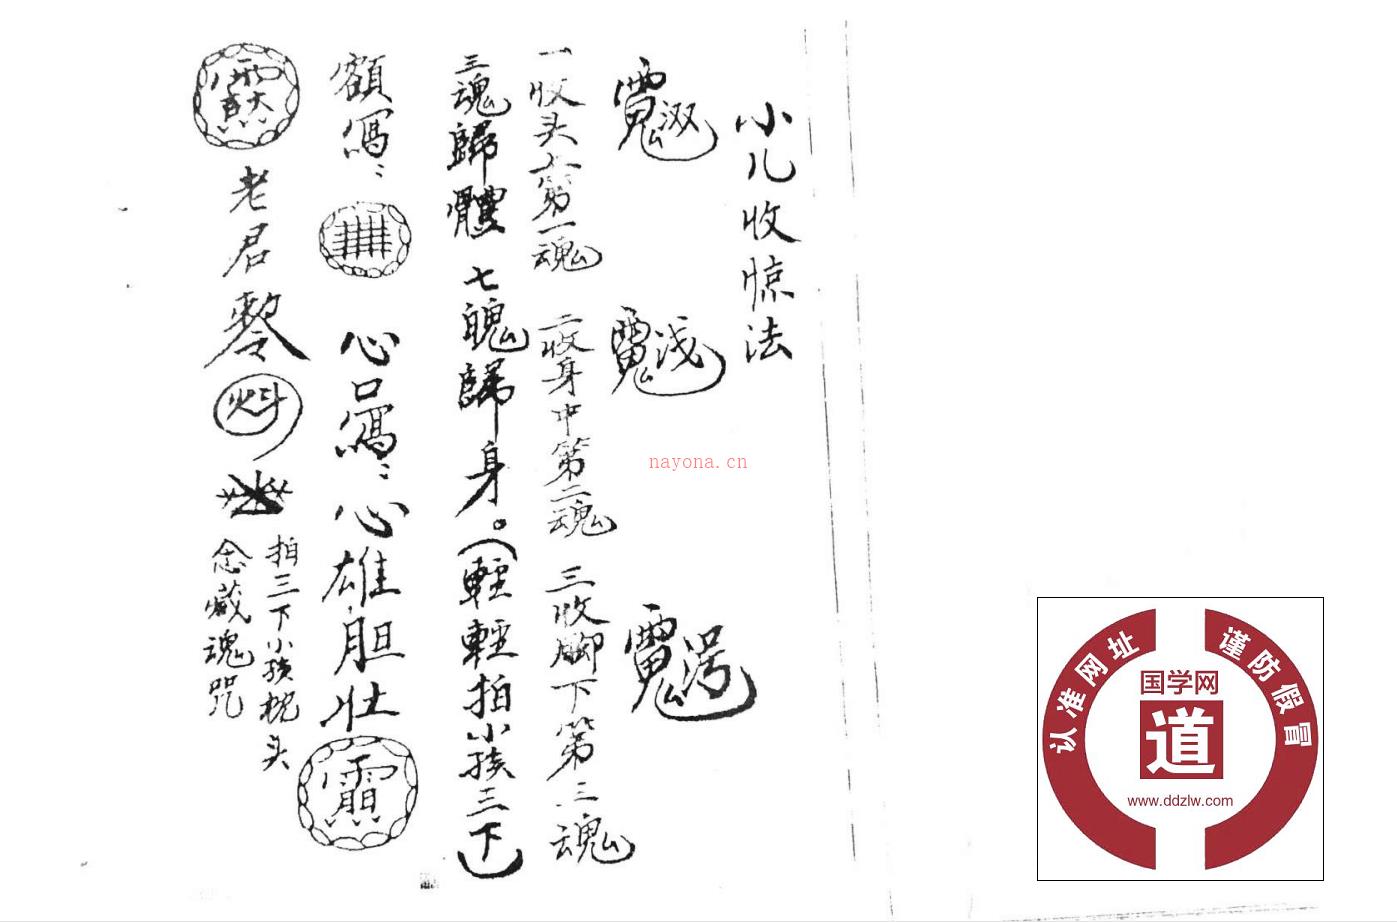 小儿收惊法
一收头上第一魂 二收身中第二魂 三收脚下第三魂
三魂歸體 七魄歸身。(輕輕拍小孩三下)
額寫:
心口寫: 心雄胆壮
老君
拍三下小孩枕头
念藏魂咒
nayona.cn
认准网址 谨防假冒
国学网
道
www.ddzlw.com